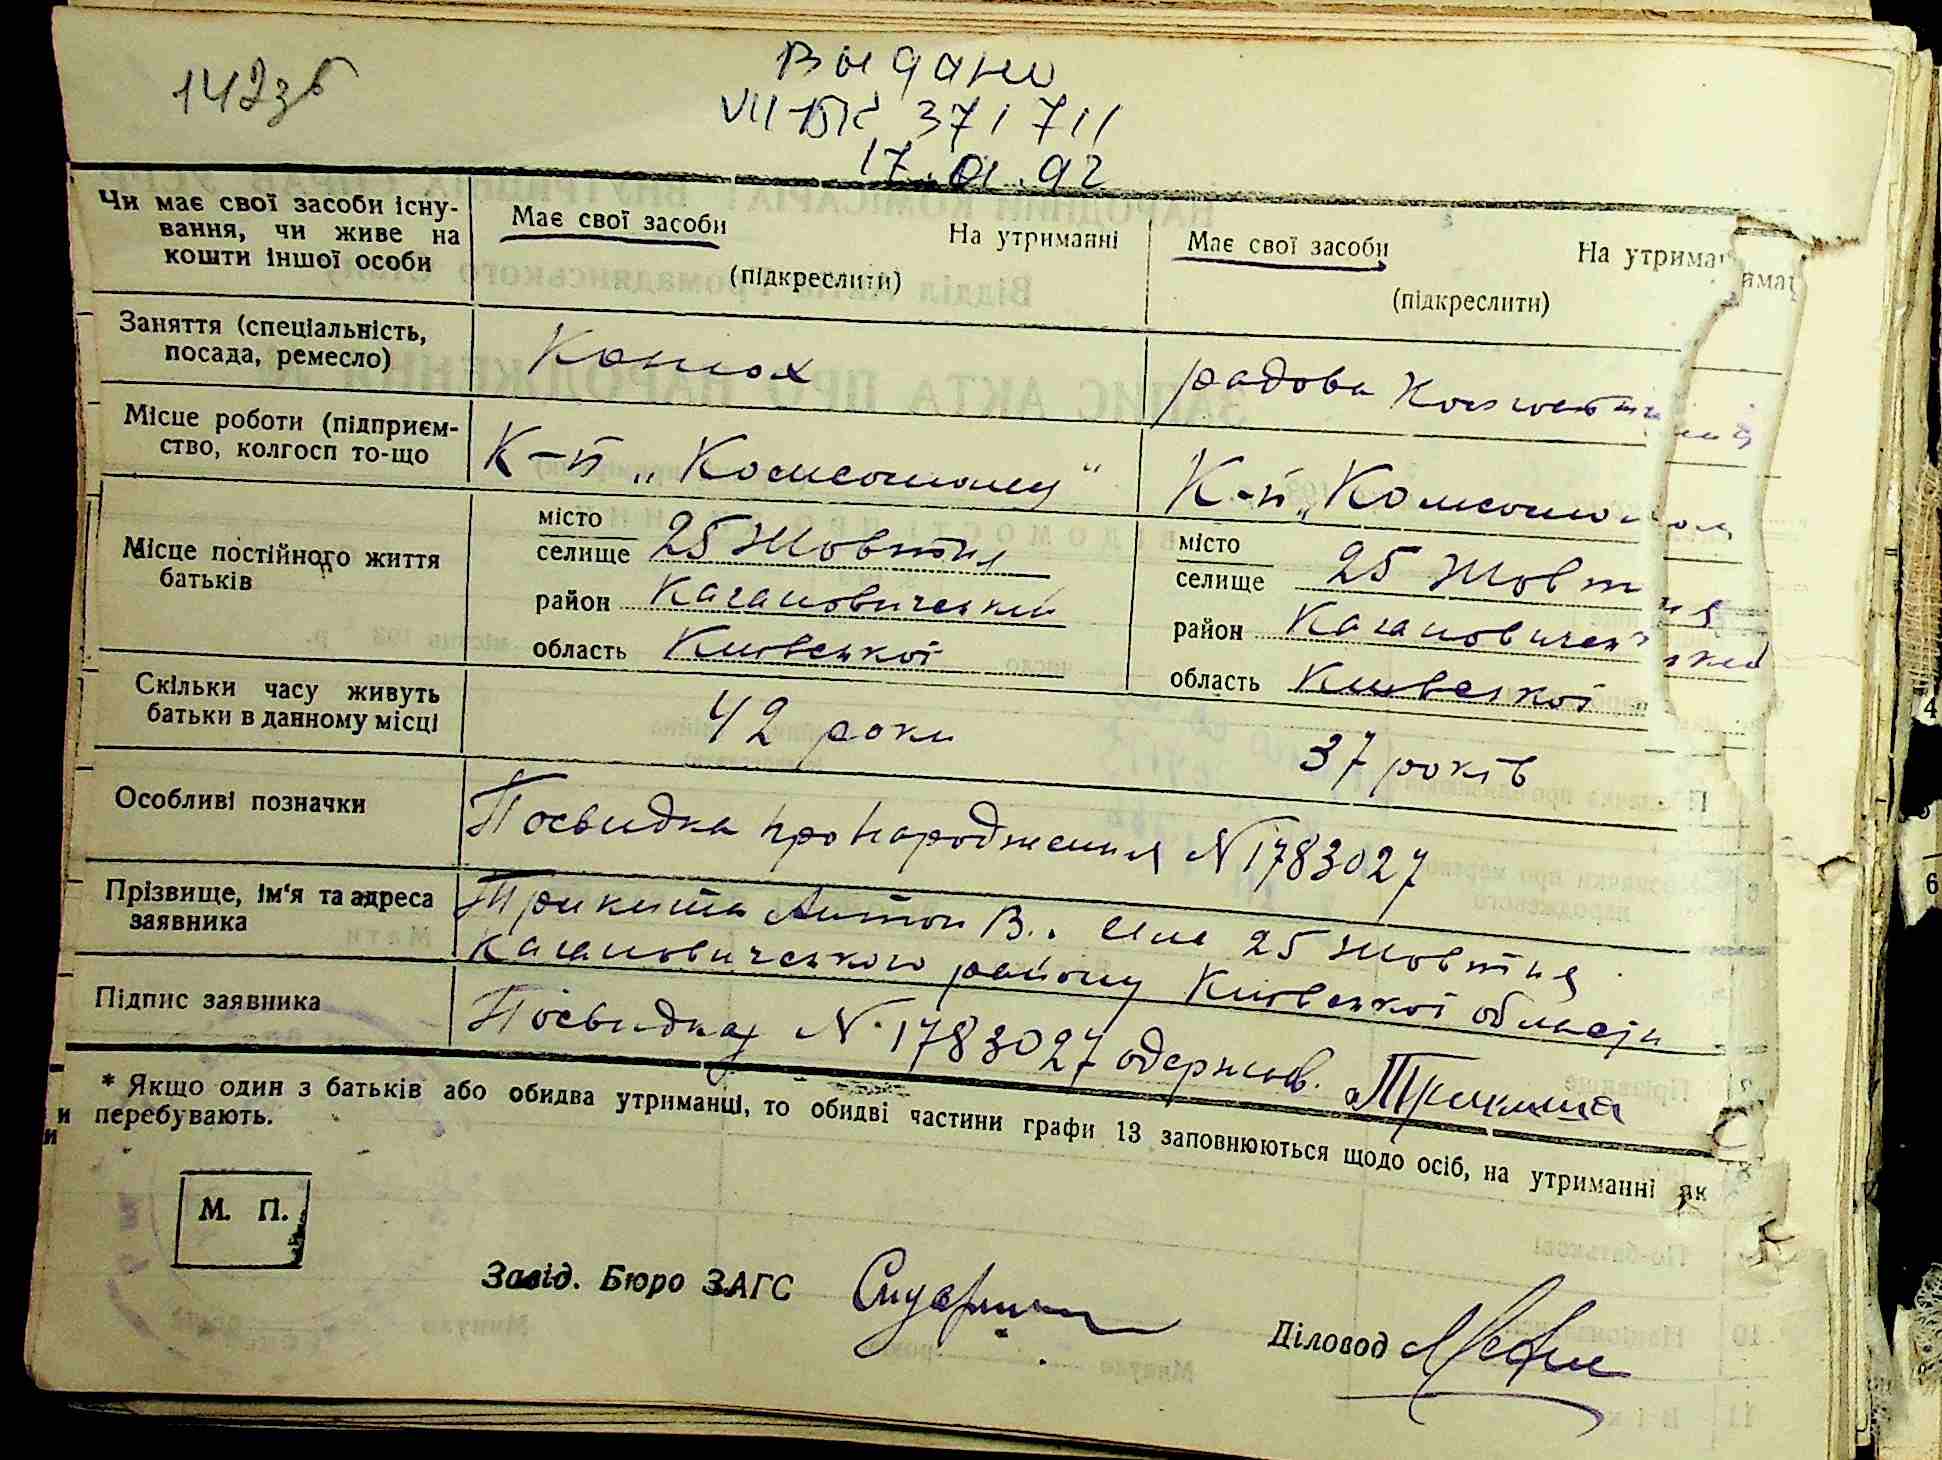 142зв
Выдано
VII-БК 371711
17.01.92
Чи має свої засоби існу-
вання, чи живе на
кошти іншої особи
Має свої засоби На утриманні
(підкреслити)
Має свої засоби На утрима
(підкреслити)
Заняття (спеціальність,
посада, ремесло)
Конюх
радова
Місце роботи (підприєм-
ство, колгосп то-що
К-п „Комсомолец"
К-п „Комсомол
Місце постійного життя
батьків
місто
селище 25 Жовтня
район Кагановичський
область Київської
місто
селище 25 Жовтня
район Кагановичський
область Київської
Скільки часу живуть
батьки в данному місці
42 роки
37 років
Особливі позначки
Посвидка про народження N 1783027
Прізвище, ім'я та адреса
заявника
Антон В.. 25 Жовтня
Кагановичського району Київської области
Підпис заявника
Посвидку N. 1783027 одержав.
* Якщо один з батьків або обидва утриманці, то обидві частини графи 13 заповнюються щодо осіб, на утриманні як
перебувають.
М. П.
Завід. Бюро ЗАГС
Діловод